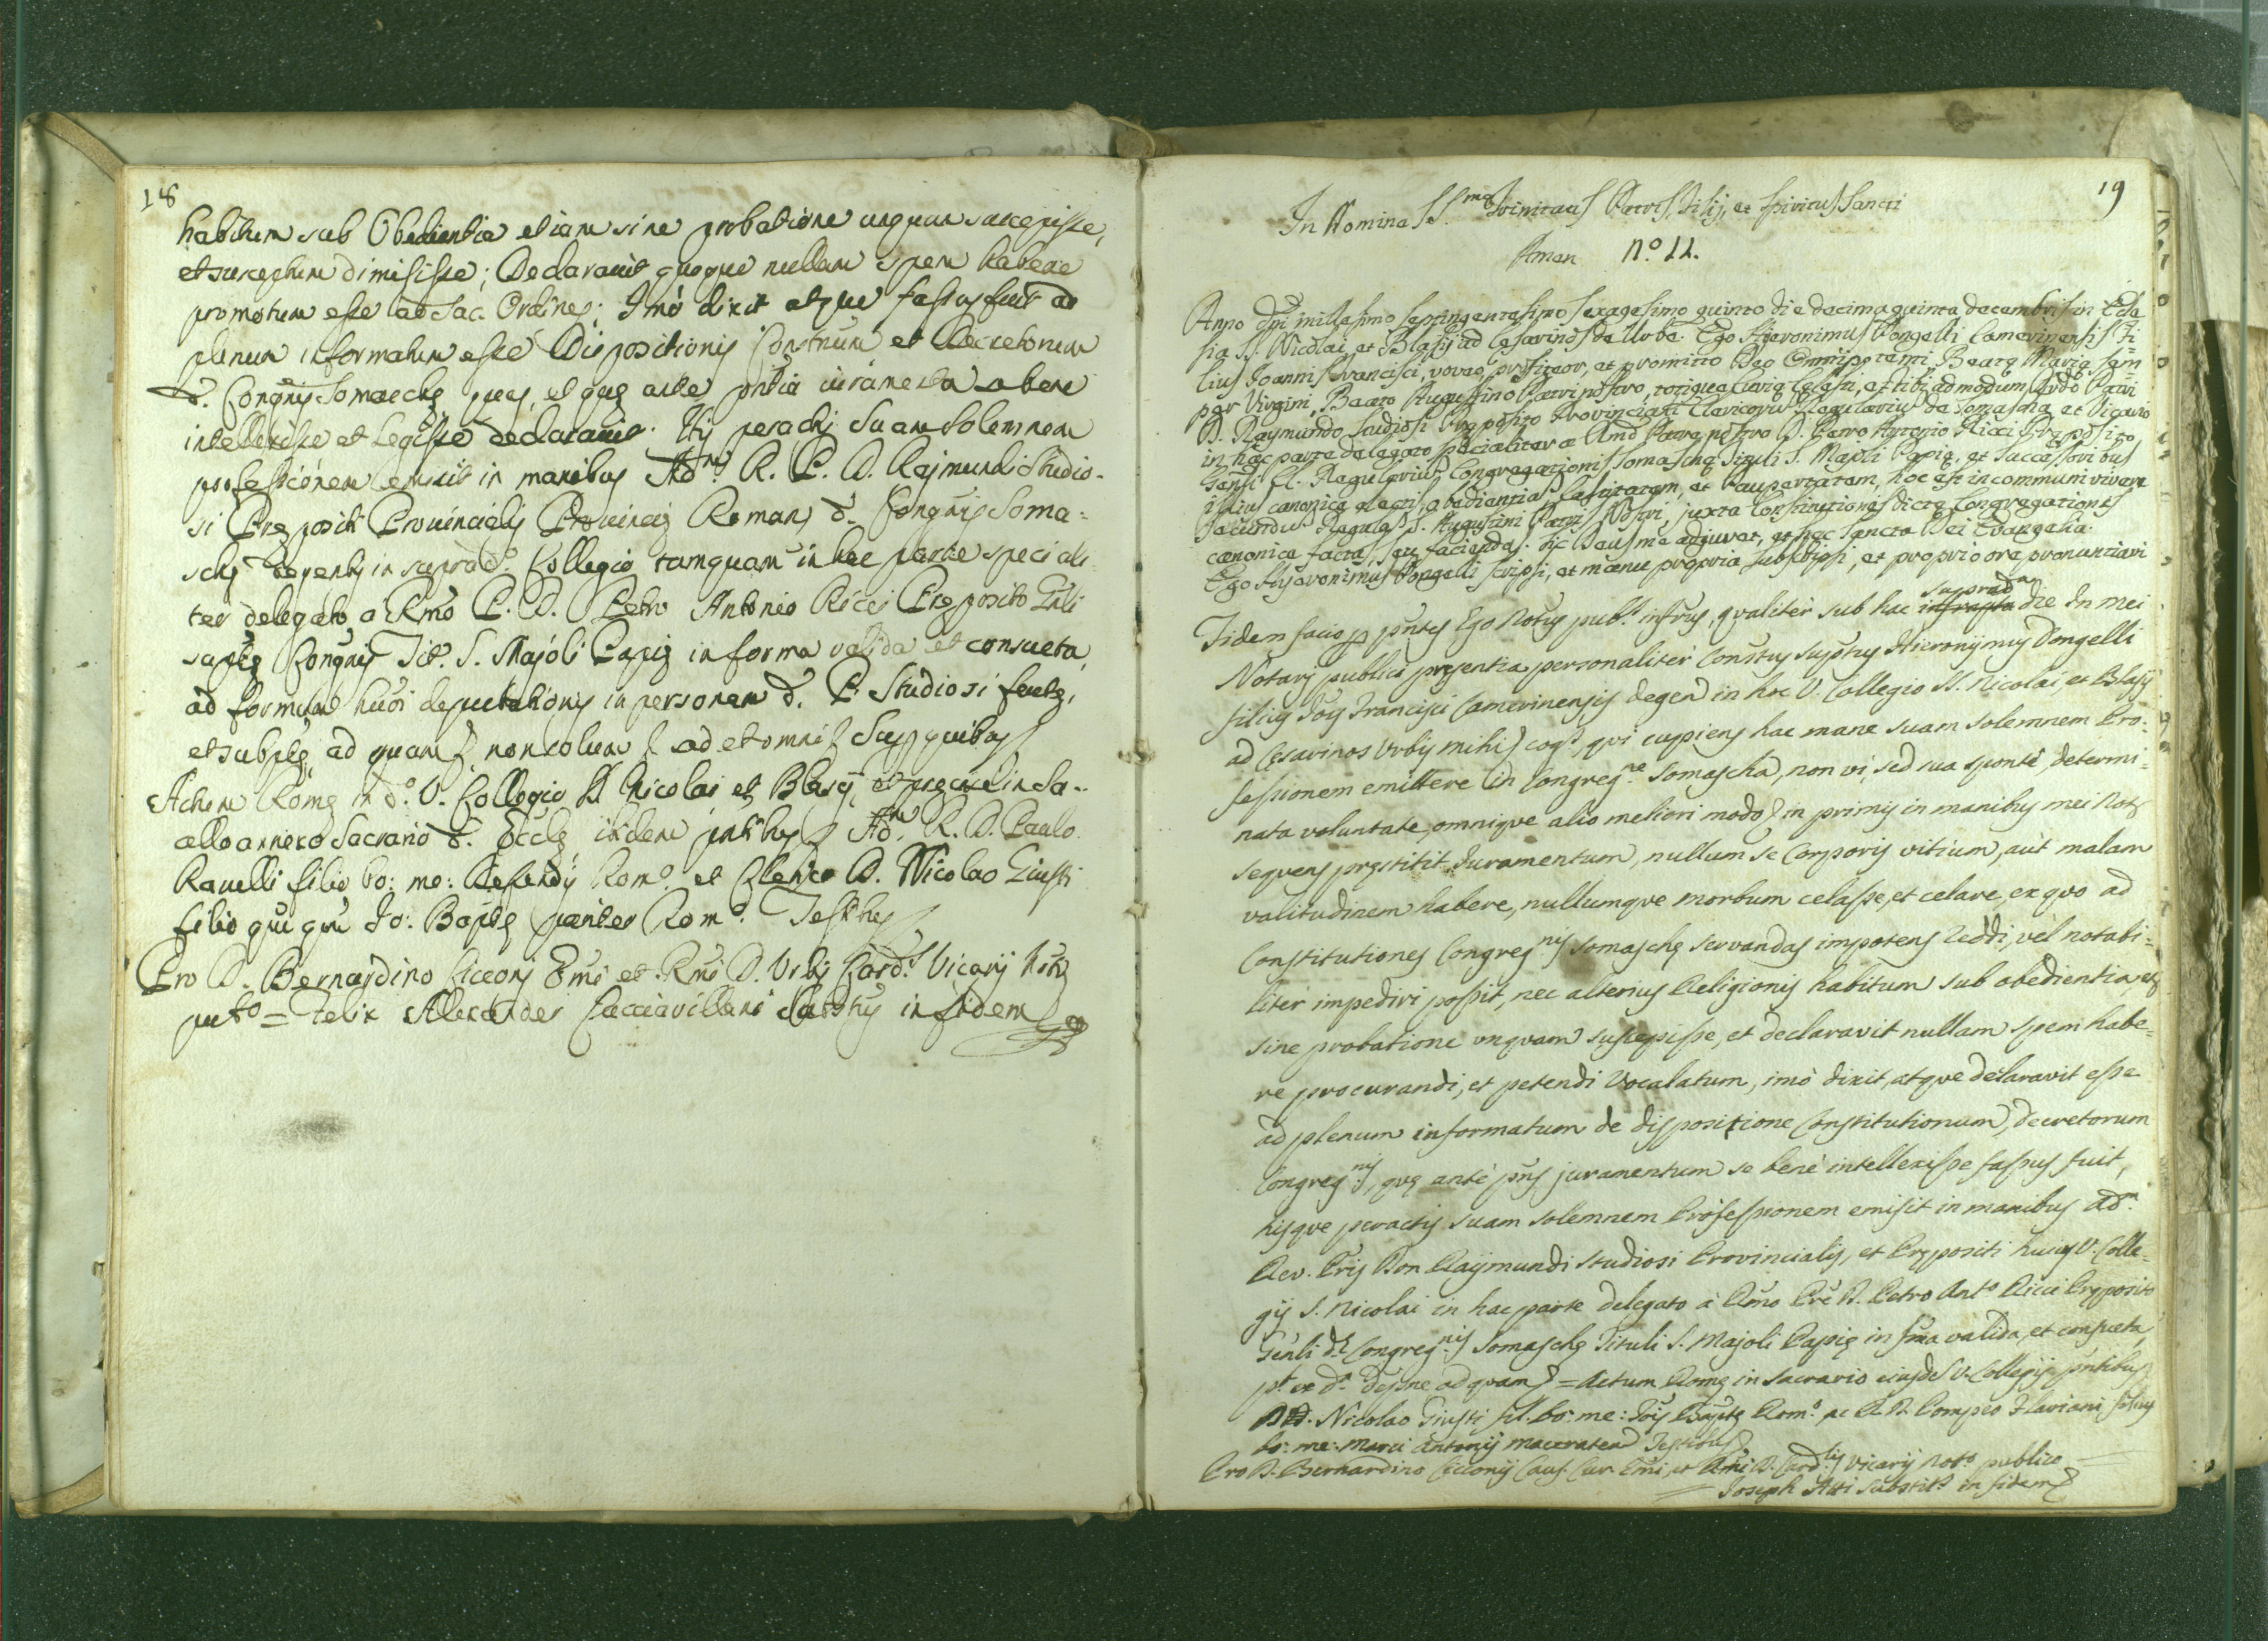 18
habitum sub Obedientia etiam sine probatione unquam suscepisse,
et susceptum dimisisse; Declaravit quoque nullam spem habere
promotum esse ad Sac. Ordines; Imò dixit atque fassus fuit ad
plenum informatum esse Dispositionis Constnum et Decretorum
d. Congnis Somaschę quas, et quę ante pntia iuramenta bene
intellexisse et Legisse declaravit. His peractis suam solemnem
professionem emisit in manibus Adm. R. P. D. Raimundi Studio-
si Prępositi Provincialis Provincię Romanę d. Congnis Soma-
schę degentis in suprad.º Collegio tamquam in hac parte speciali
ter delegato a Rmo P. D. Petro Antonio Ricci Pręposito Gnli
suptę Congnis Tit. S. Majoli Papię in forma valida et consueta
ad formam huoi deputationis in personam d. P. Studiosi factę,
et subptę ad quam non solum ad et omni Sup quibus
Actum Romę in d.º V. Collegio SS. Nicolai et Blasij, et precise in Sa-
cello annexo Sacrario d. Eccłę, itidem pntibus Adm. R. D. Paulo
Ravelli filio bo: me: Rom.º et Clerico D. Nicolao Giusti
filio qm Jo: Baptę pariter Rom.º Testibus
Pro D. Bernardino Ciccony Emi et Rmi D. Urbis Card.s Vicarij Notº
pubº = Felix Alexander Cacciavillani Subtus in fidem
19
In Nomine SS.mę Trinitatis Patris, Filij, et Spiritus Sancti
Amen N.º 11.
Anno Dni millesimo septingentesimo sexagesimo quinto die decimaquinta decembris in Ecle
sia SS. Nicolai et Blasij ad Cesarinos de Urbe. Ego Hieronimus Dongelli Camerinensis Fi=
lius Joannis Francisci, voveo, profiteor, et promitto Deo Omnipotenti Beatę Marię sem=
per Virgini, Beato Augustino Patri nostro, totique Curię Cęlesti, et tibi admodum Rvdo Patri
D. Raymundo Studiosi Pręposito Provinciali Clericorum Regularium de Somasca et Vicario
in hac parte delegato specialiter a Rmo Patre nostro D. Petro Antonio Ricci Pręposito
Genli Cl. Regularium Congregationis Somaschę Tituli S. Majoli Papię, et Successoribus
illius canonice electis, obedientiam, Castitatem, et Paupertatem, hoc est in communi vivere
secundum Regulas S. Augustini Patris Nostri juxta Constitutiones dictę Congregationis
canonice factas, seu faciendas. Sic Deus me adjuvet, et hęc Sancta Dei Evangelia.
Ego Hyeronimus Dongelli scripsi, et manu propria subscripsi, et proprio ore pronuntiavi
Fidem facio per pntes Ego Notus pub.s infrus, qualiter sub hac infrapta suprad.a die In mei
Notarij publici pręsentia personaliter Constus supotus Hieronymus Dongelli
filius Jois Francisci Camerinensis degen in hoc V. Collegio SS. Nicolai, et Blasij
ad Cesarinos Urbis mihi cog.s, qui cupiens hac mane suam solemnem Pro-
fessionem emittere in Congreg.ne Somascha, non vi, sed sua sponte, determi=
nata voluntate, omnique alio meliori modo in primis in manibus mei Notę
sequens pręstitit Juramentum, nullum se Corporis vitium, aut malam
valitudinem habere, nullumque morbum celasse, et celare, ex quo ad
Constitutiones Congreg.nis Somaschę servandas impotens reddi, vel notabi=
liter impediri possit, nec alterius Religionis habitum sub obedientia, et
sine probatione unquam suscepisse, et declaravit nullam spem habe=
re procurandi, et petendi Vocalatum, imò dixit, atque delaravit esse
ad plenum informatum de dispositione Constitutionum, decretorum
Congreg.nis, quę antè pns juramentum se benè intellexisse fassus fuit,
hisque peractis suam solemnem Professionem emisit in manibus adm.
Rev. Pris Don Raymundi Studiosi Provincialis, et Prępositi huius V. Colle=
gij S. Nicolai in hac parte delegato à Rmo Pre D. Petro Ant.º Ricci Pręposito
Genli d. Congreg.nis Somaschę Tituli S. Majoli Papię in fma valida, et consueta
pt ex d.a depne ad quam = Actum Romę in Sacrario eiusde V. Collegij pntibus
DD. Nicolao Giusti fil. bo: me: Jois Baptę Rom.º ac R. D. Pompeo Flaviani filius
bo: me: Marci Antonij maceraten Testibus
Pro D. Bernardino Ciccony Caus. Cur. Emi, et Rmi D. Card.lis Vicarij Not.º publico
= Joseph Atti Substit.s in fidem